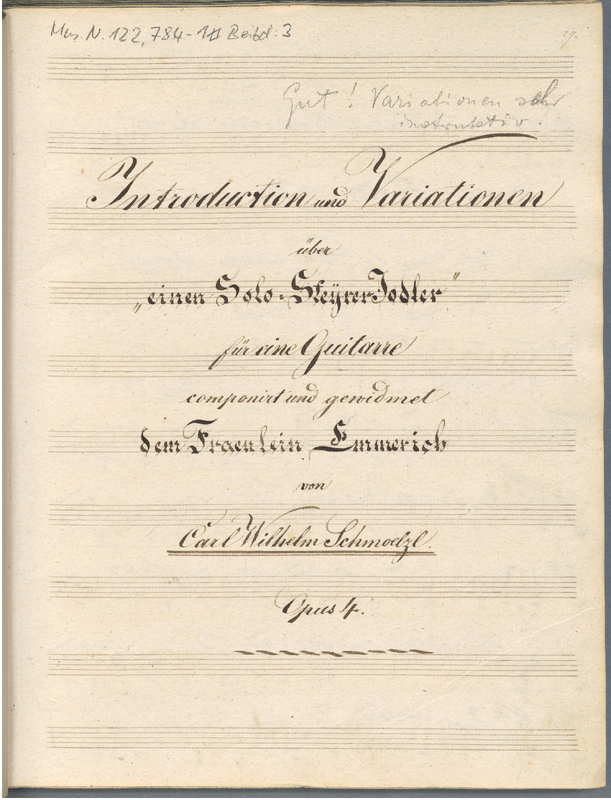 Mus. N. 122,784-1# Beibd. 3
29.
Gut! Variationen sehr
instruktiv.
Introduction und Variationen
über
„einen Solo-SteÿrerJodler"
für eine Guitarre
componirt und gewidmet
dem Fraenlein Emmerich
von
Carl Wilhelm Schmoelzl.
Opus 4.